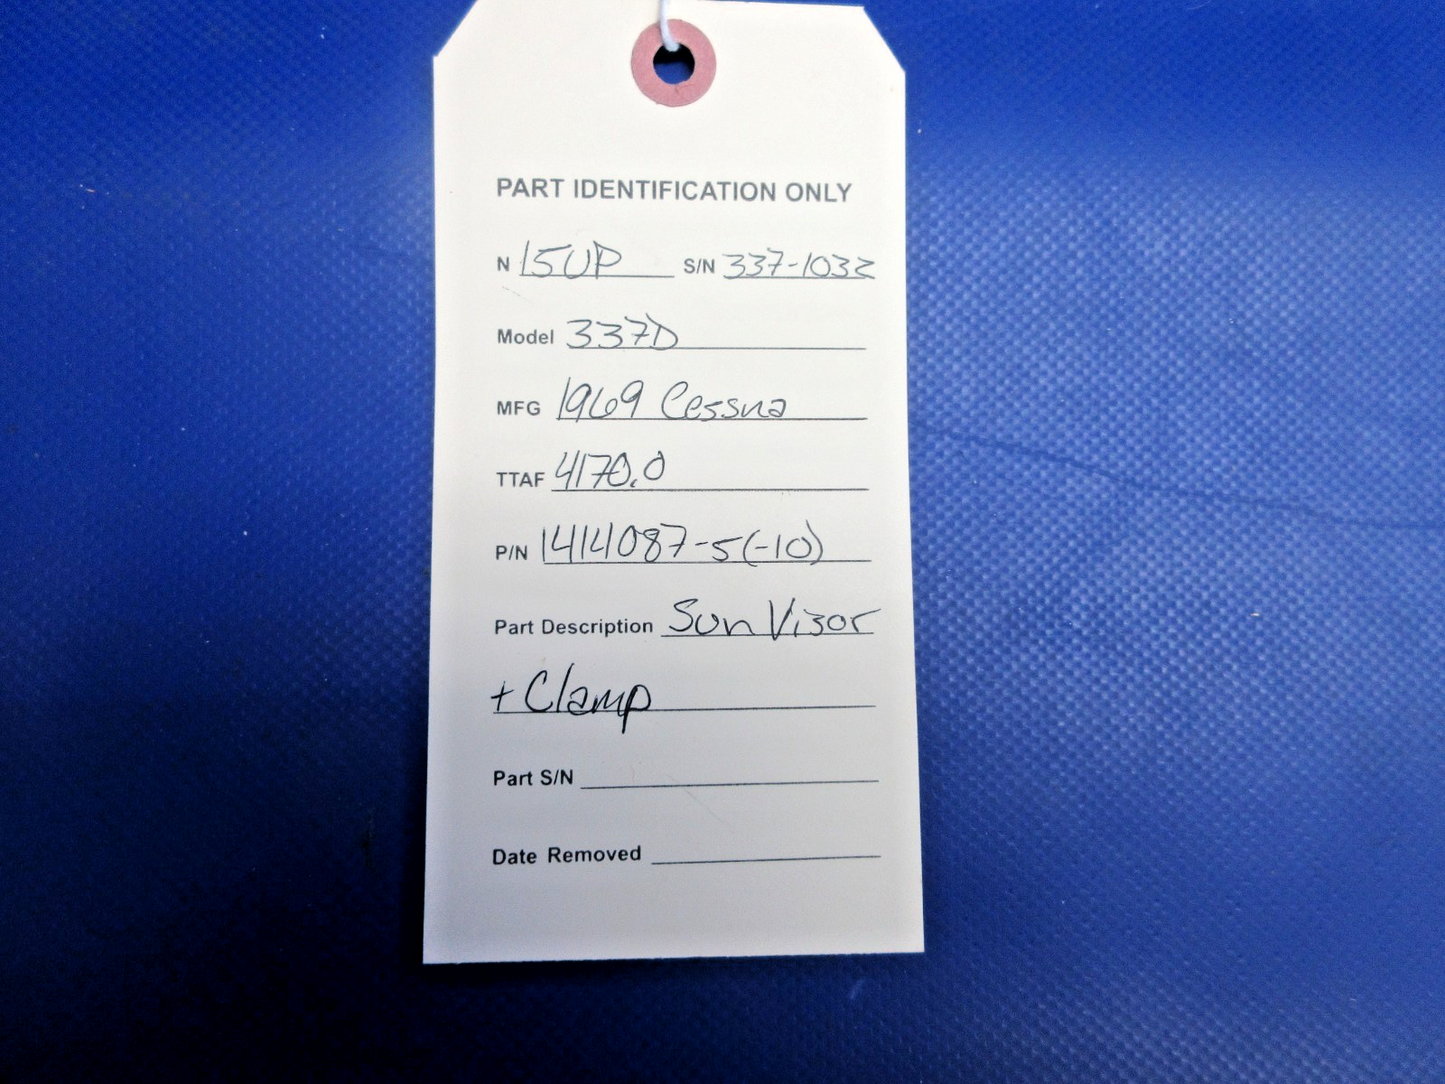 PART IDENTIFICATION ONLY
N 15UP S/N 337-1032
Model 337D
MFG 1969 Cessna
TTAF 4170.0
P/N 1414087-5(-10)
Part Description Sun Visor
+ Clamp
Part S/N
Date Removed